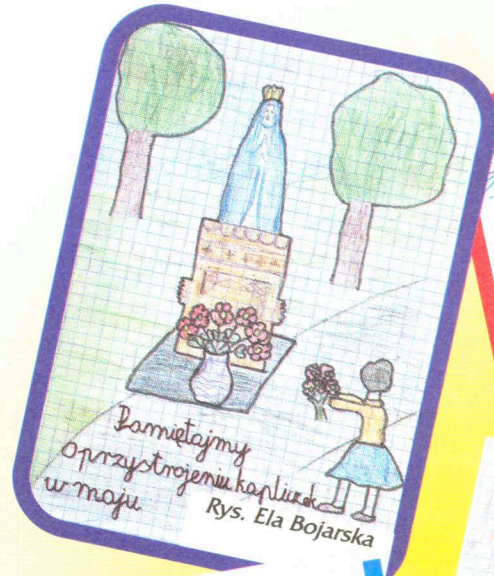 Pamiętajmy
o przystrojeniu kapliczek
w maju
Rys. Ela Bojarska